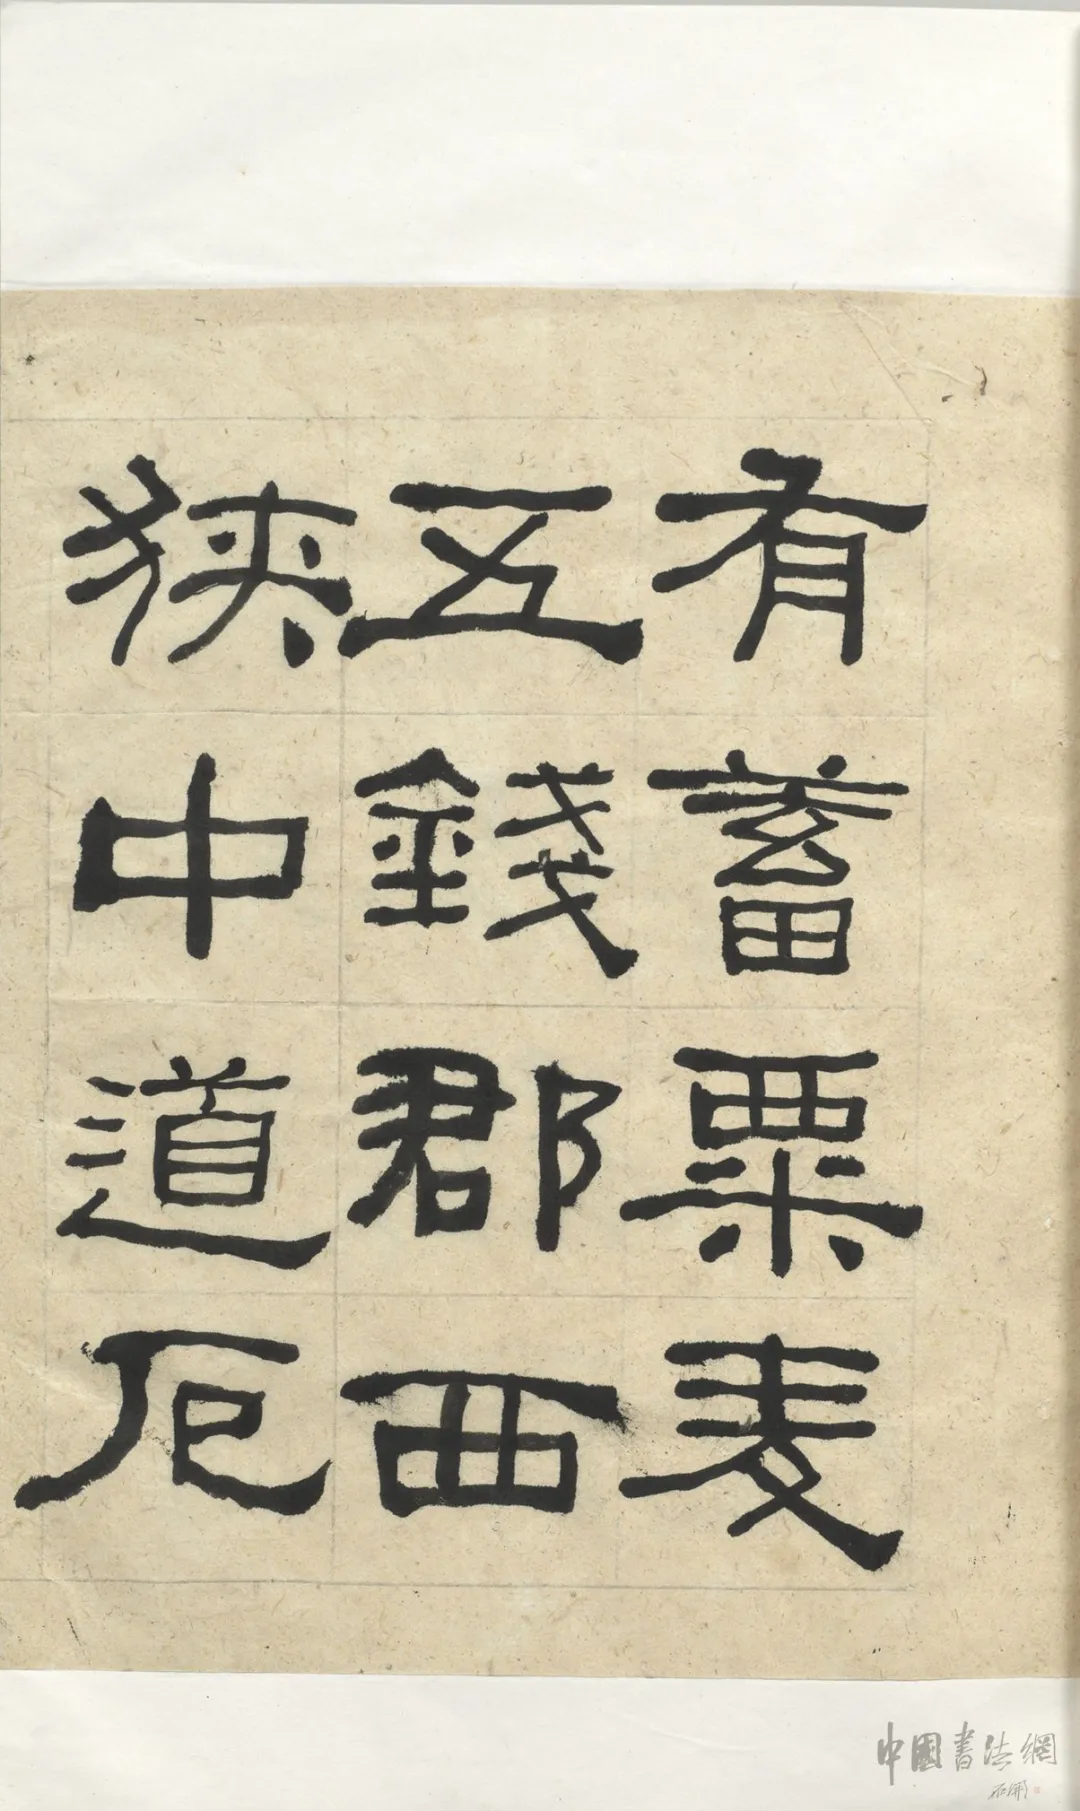 有蓄粟麦
五錢郡西
狹中道厄
中國書法網